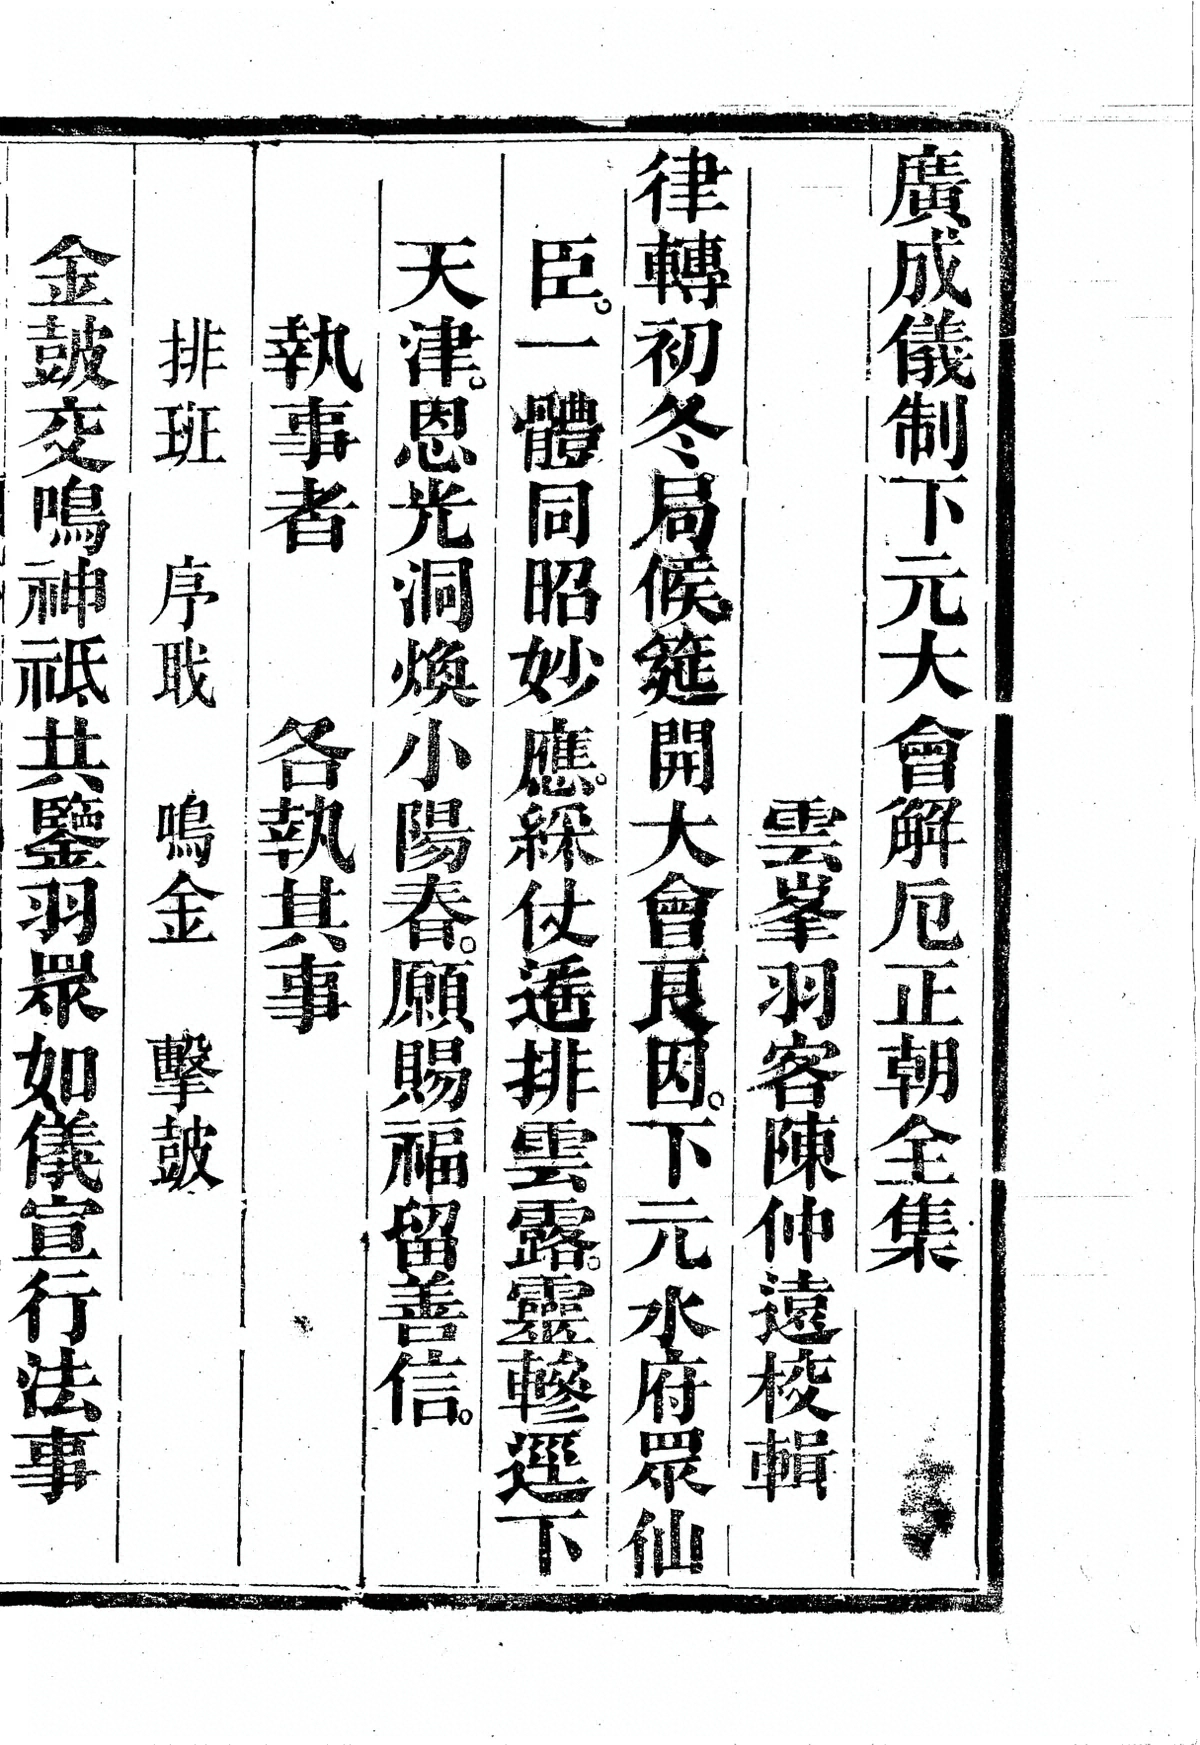 廣成儀制下元大會解厄正朝全集
雲峯羽客陳仲遠校輯
律轉初冬局候筵開大會良因。下元水府眾仙
臣。一體同昭妙應。綵仗遙排雲露。靈轸逕下
天津。恩光洞煥小陽春。願賜福留善信。
執事者　各執其事
排班　序職　鳴金　擊鼓
金鼓交鳴神祇共鑒羽眾如儀宣行法事